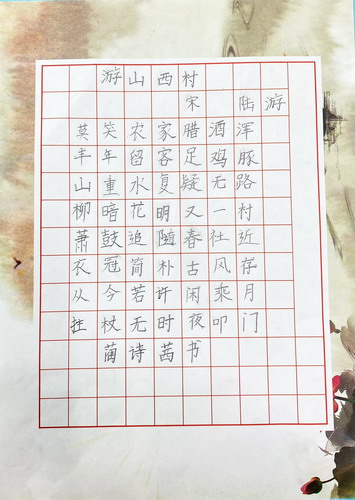 游山西村
宋 陆游
莫笑农家腊酒浑
丰年留客足鸡豚
山重水复疑无路
柳暗花明又一村
萧鼓追随春社近
衣冠简朴古风存
从今若许闲乘月
拄杖无时夜叩门
诗茜书